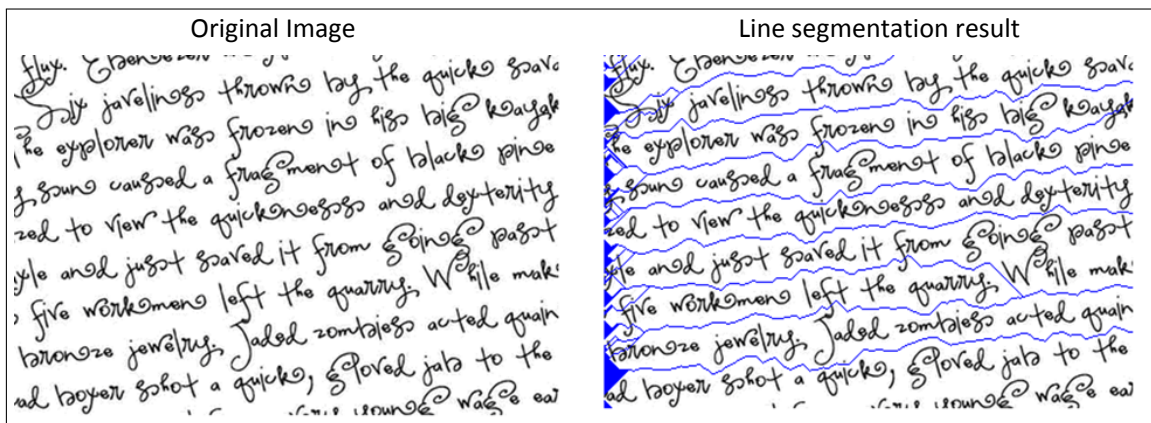 Original Image
flux. Ebenezer
Six javelins thrown by the quick sava
he explorer was frozen in his big kayak
caused a fragment of black pine
zed to view the quickness and dexterity
yle and just saved it from going past
five workmen left the quarry. While mak
bronze jewelry. Jaded zombies acted quain
ad boxer shot a quick, gloved jab to the
young wage ear
Line segmentation result
flux. Ebenezer
Six javelins thrown by the quick sava
he explorer was frozen in his big kayak
caused a fragment of black pine
zed to view the quickness and dexterity
yle and just saved it from going past
five workmen left the quarry. While mak
bronze jewelry. Jaded zombies acted quain
ad boxer shot a quick, gloved jab to the
young wage ear